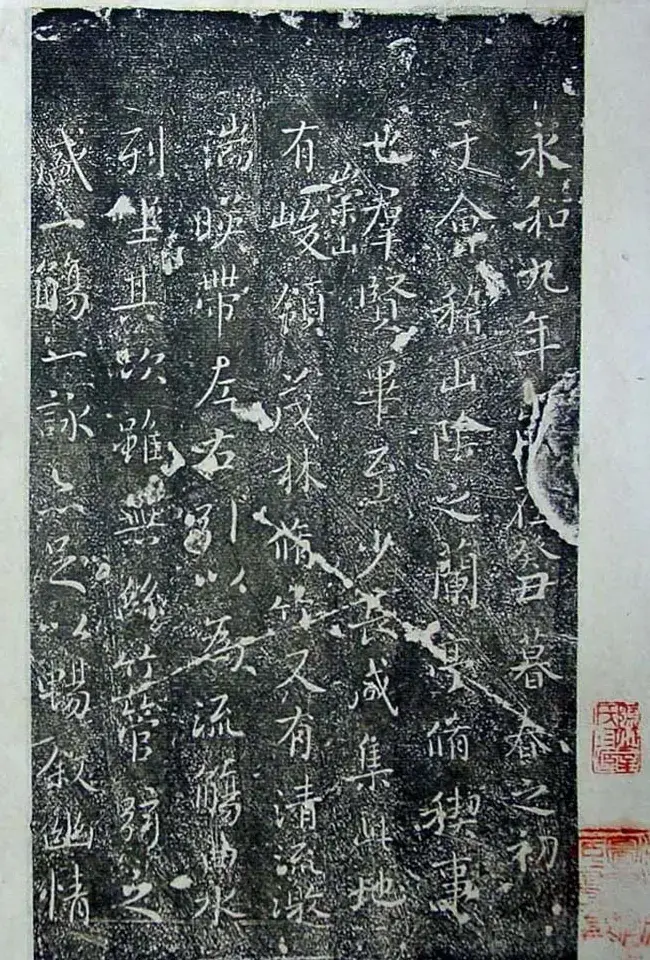 永和九年在癸丑暮春之初
于會稽山陰之蘭亭脩稧事
也羣賢畢至少長咸集此地
有崇山峻領茂林脩竹又有清流激
湍暎帶左右引以為流觴曲水
列坐其次雖無絲竹管弦之
盛一觴一詠亦足以暢敘幽情